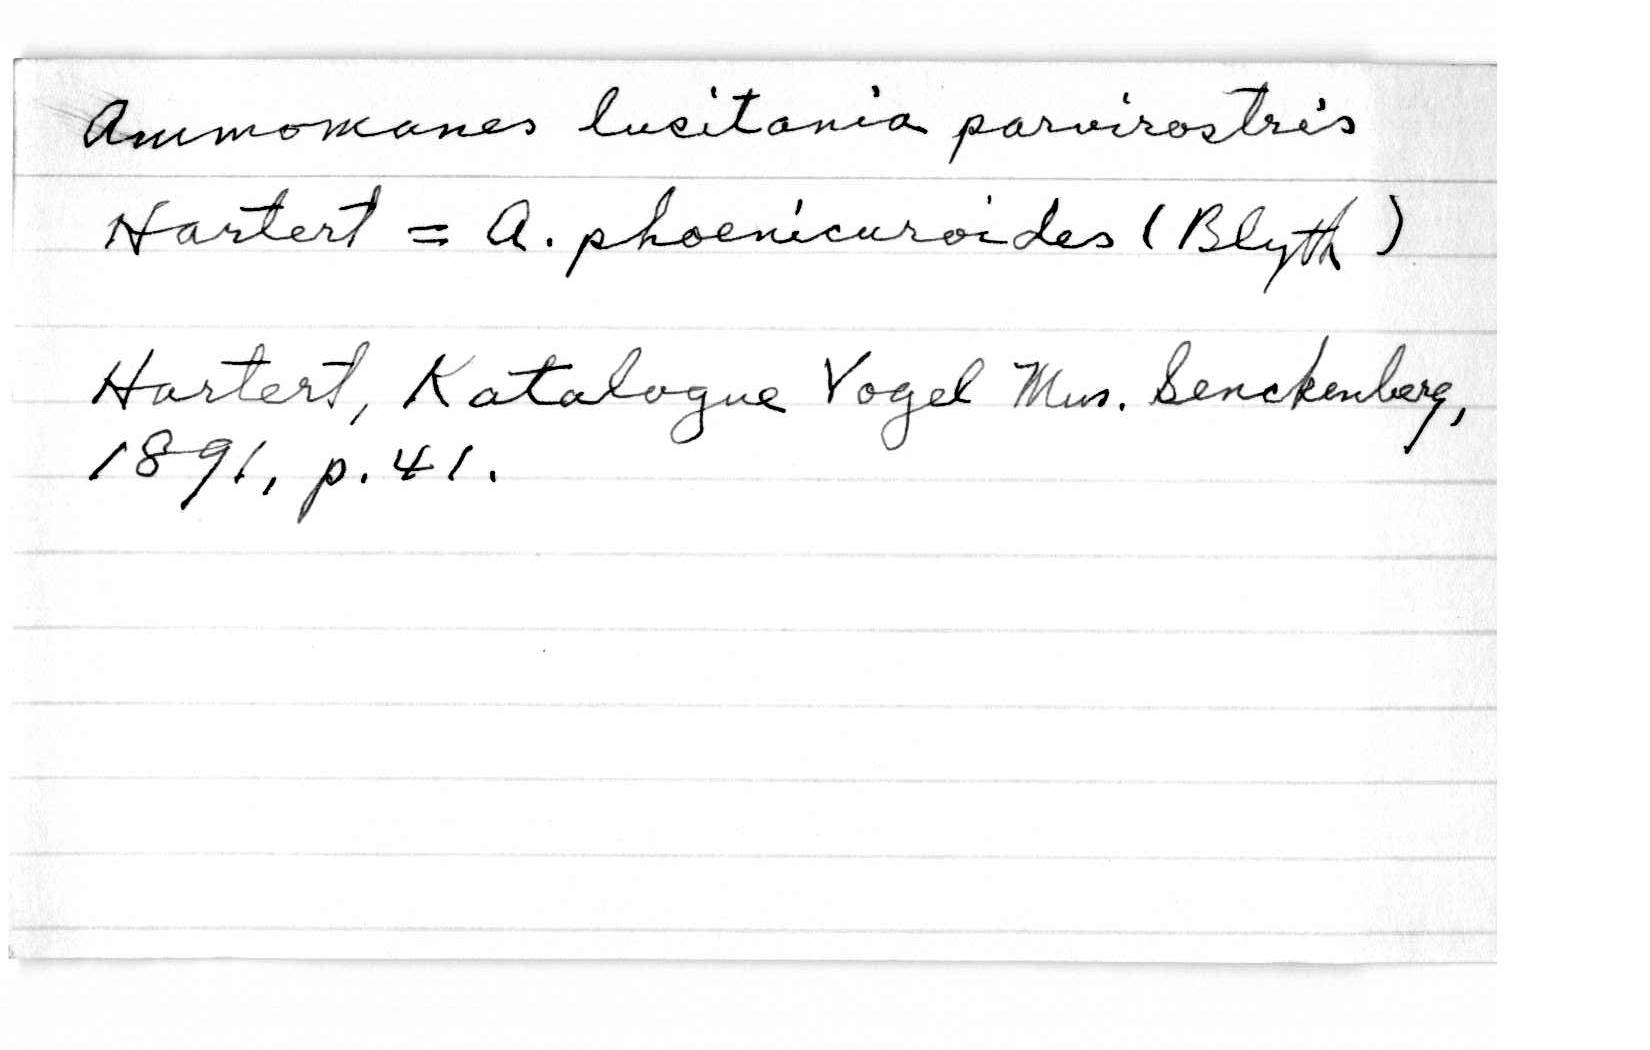 Ammomanes lusitania parvirostris
Hartert = A. phoenicuroides (Blyth)
Hartert, Katalogue Vogel Mus. Senckenberg,
1891, p. 41.